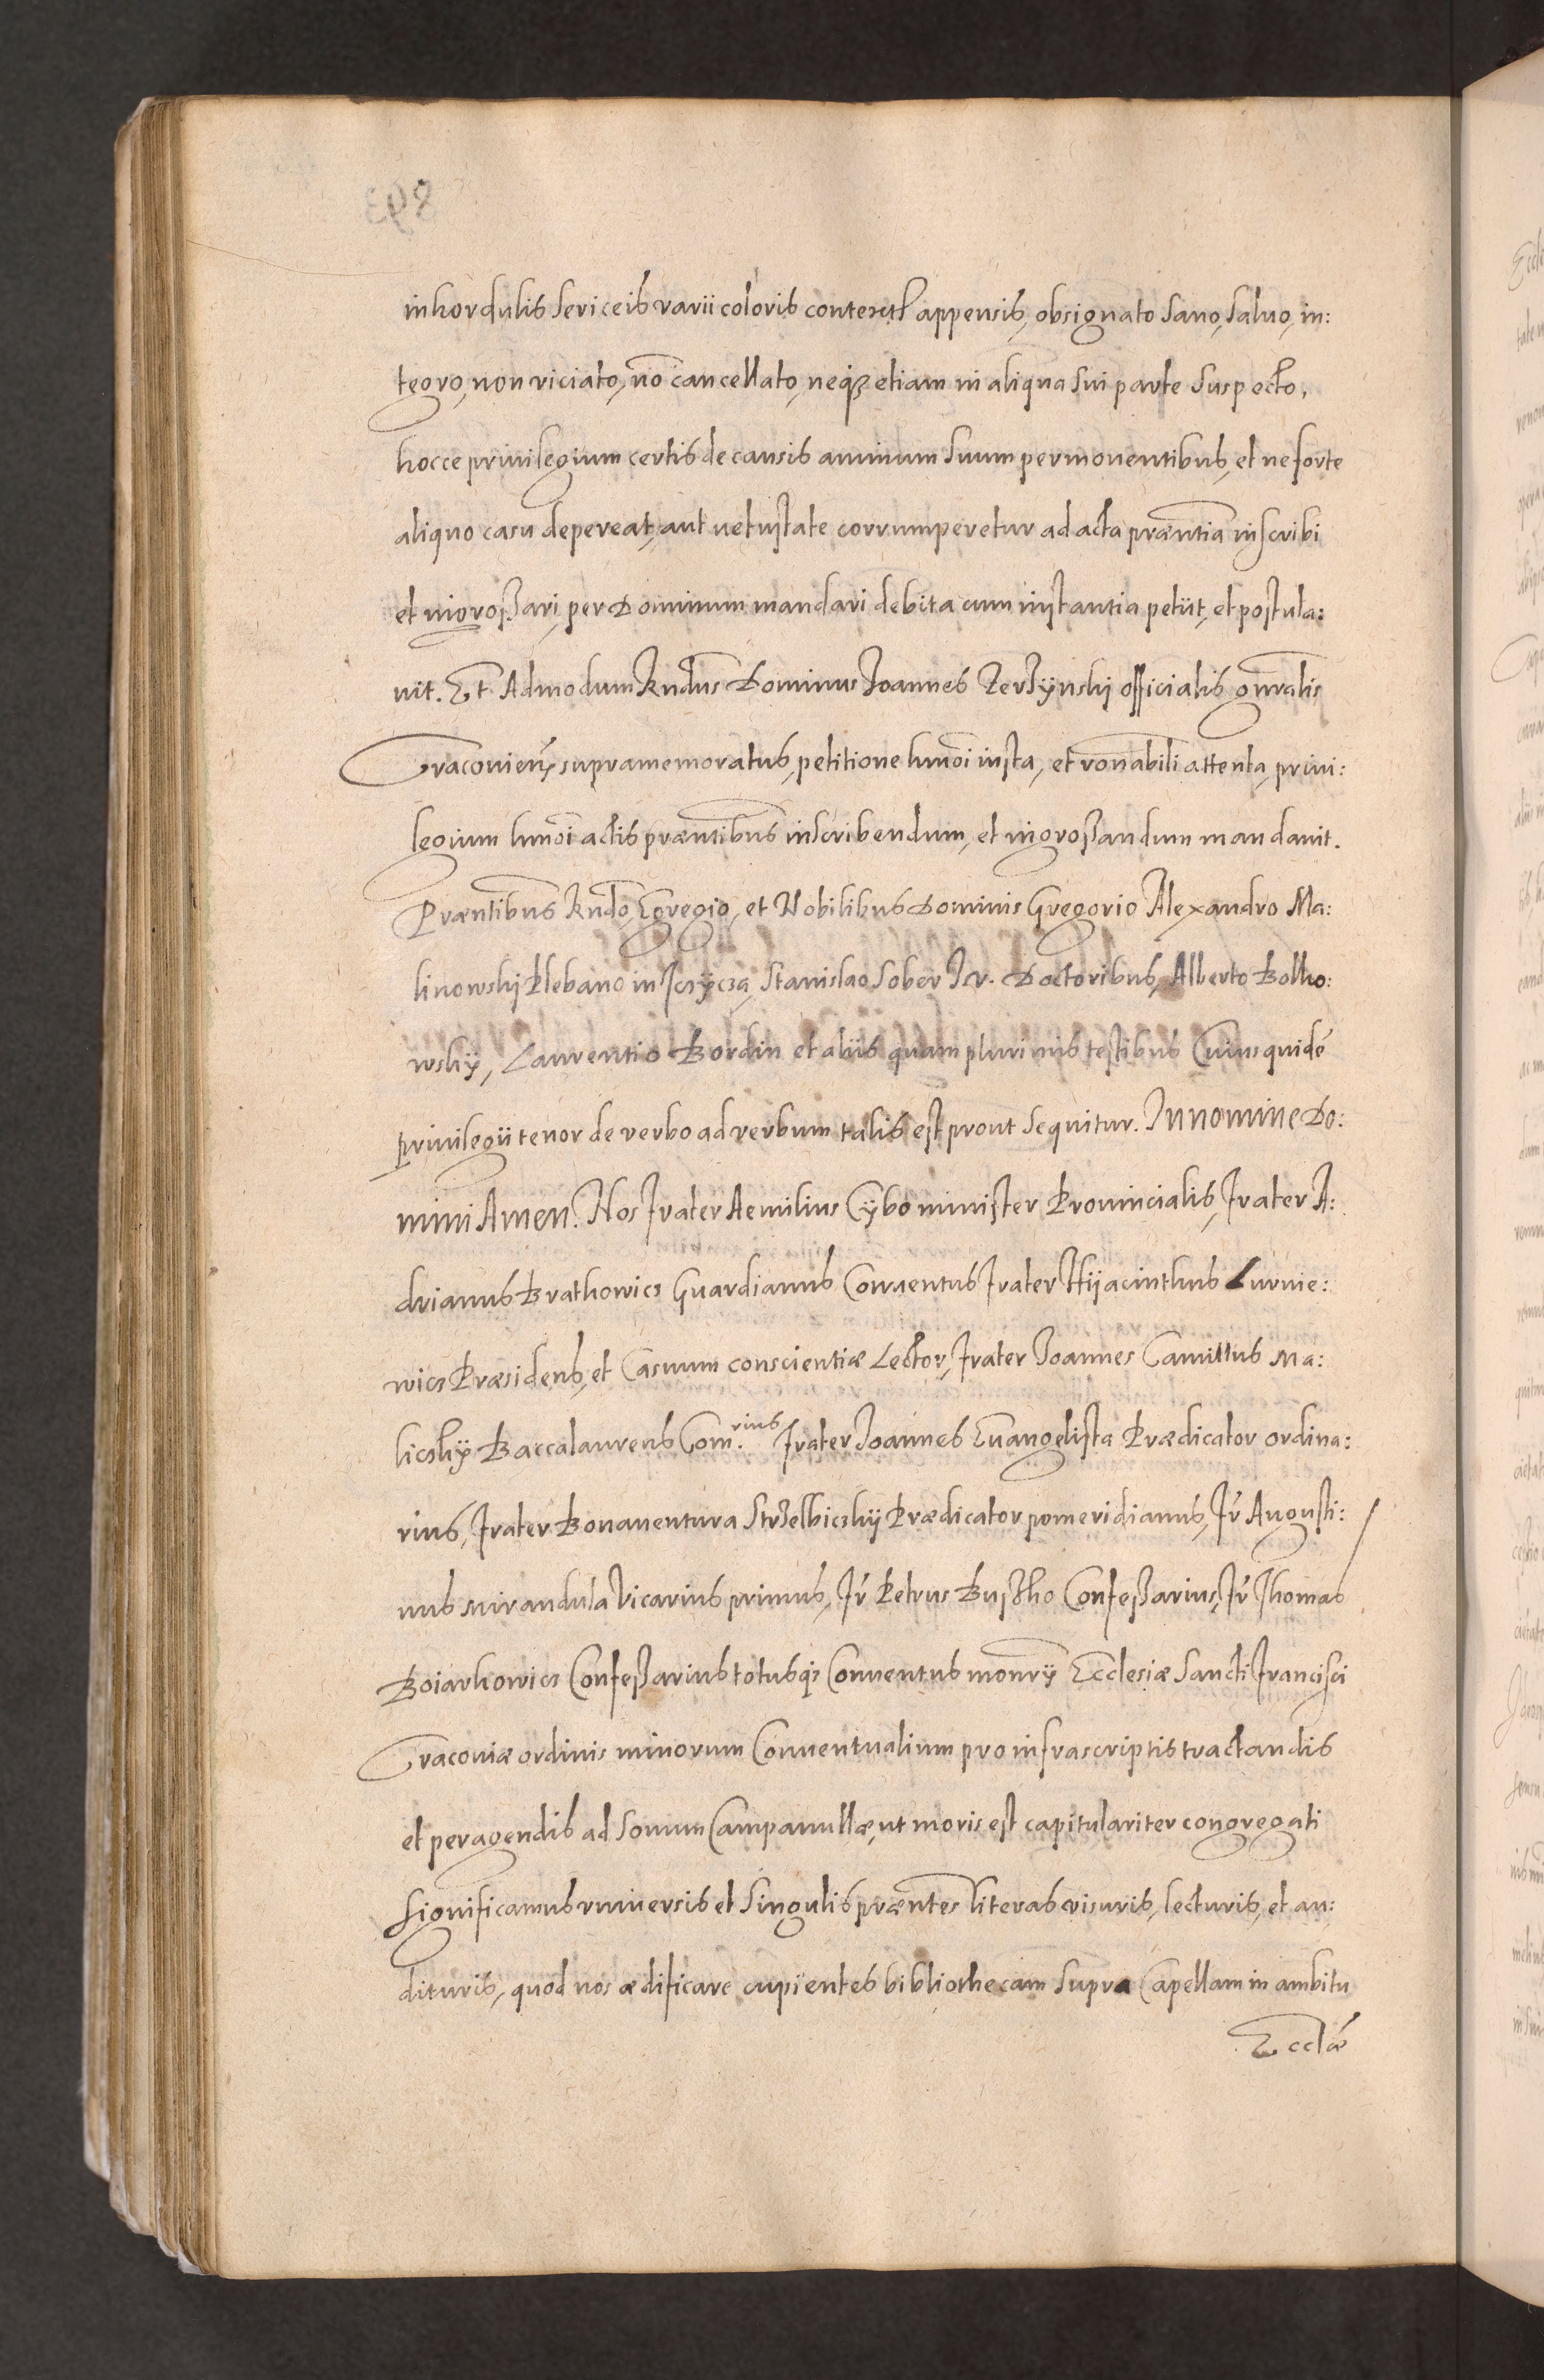 in kordulis sericeis varii coloris contextis appensis, obsignato sano, saluo, in:
tegro, non viciato, nō cancellato, neqȝ etiam in aliqua sui parte suspecto,
hocce priuilegium certis de causis animum suum permouentibus, et ne forte
aliquo casu depereat, aut uetustate corrumperetur ad acta præntia inscribi
et ingrossari per Dominum mandari debita cum instantia petiit, et postula:
uit. Et Admodum Rndus Dominus Joannes Zerzÿnskj officialis gnralis
Cracouien, supramemoratus, petitione hmōi iusta, et ronabili attenta, priui:
legium hmōi actis præntibus inscribendum, et ingrossandum mandauit.
Præntibus Rndo, Egregio, et Nobilibus Dominis Gregorio Alexandro Ma:
linowskj Plebano in Jczÿcza, Stanislao Sober J.V. Doctoribus, Alberto Bolko:
wskÿ, Laurentio Bordin et aliis quam plurimis testibus Cuius quidē
priuilegii tenor de verbo ad verbum talis est prout sequitur. In nomine Do:
mini Amen. Nos Frater Aemilius Cÿbo minister Prouincialis, Frater A:
drianus Bratkowicz Guardianus Conuentus Frater Hÿacinthus Lurnie:
wicz Præsidens, et Casuum conscientiæ Lector, Frater Joannes Camillus Ma:
liczkÿ Baccalaureus Com.rius Frater Joannes Euangelista Prædicator ordina:
rius, Frater Bonauentura Strzelbiczkÿ Prædicator pomeridianus, Fr Augusti:
nus Mirandula Vicarius primus, Fr Petrus Buszko Confessarius, Fr Thomas
Boiarkowicz Confessarius totusqȝ Conuentus monrÿ Ecclesiæ Sancti Francisci
Cracouiæ ordinis minorum Conuentualium pro infrascriptis tractandis
et peragendis ad sonum Campanullæ, ut moris est capitulariter congregati
significamus vniuersis et singulis præntes literas visuris, lecturis, et au:
dituris, quod nos ædificare cupientes bibliothecam supra Capellam in ambitu
Ecclæ